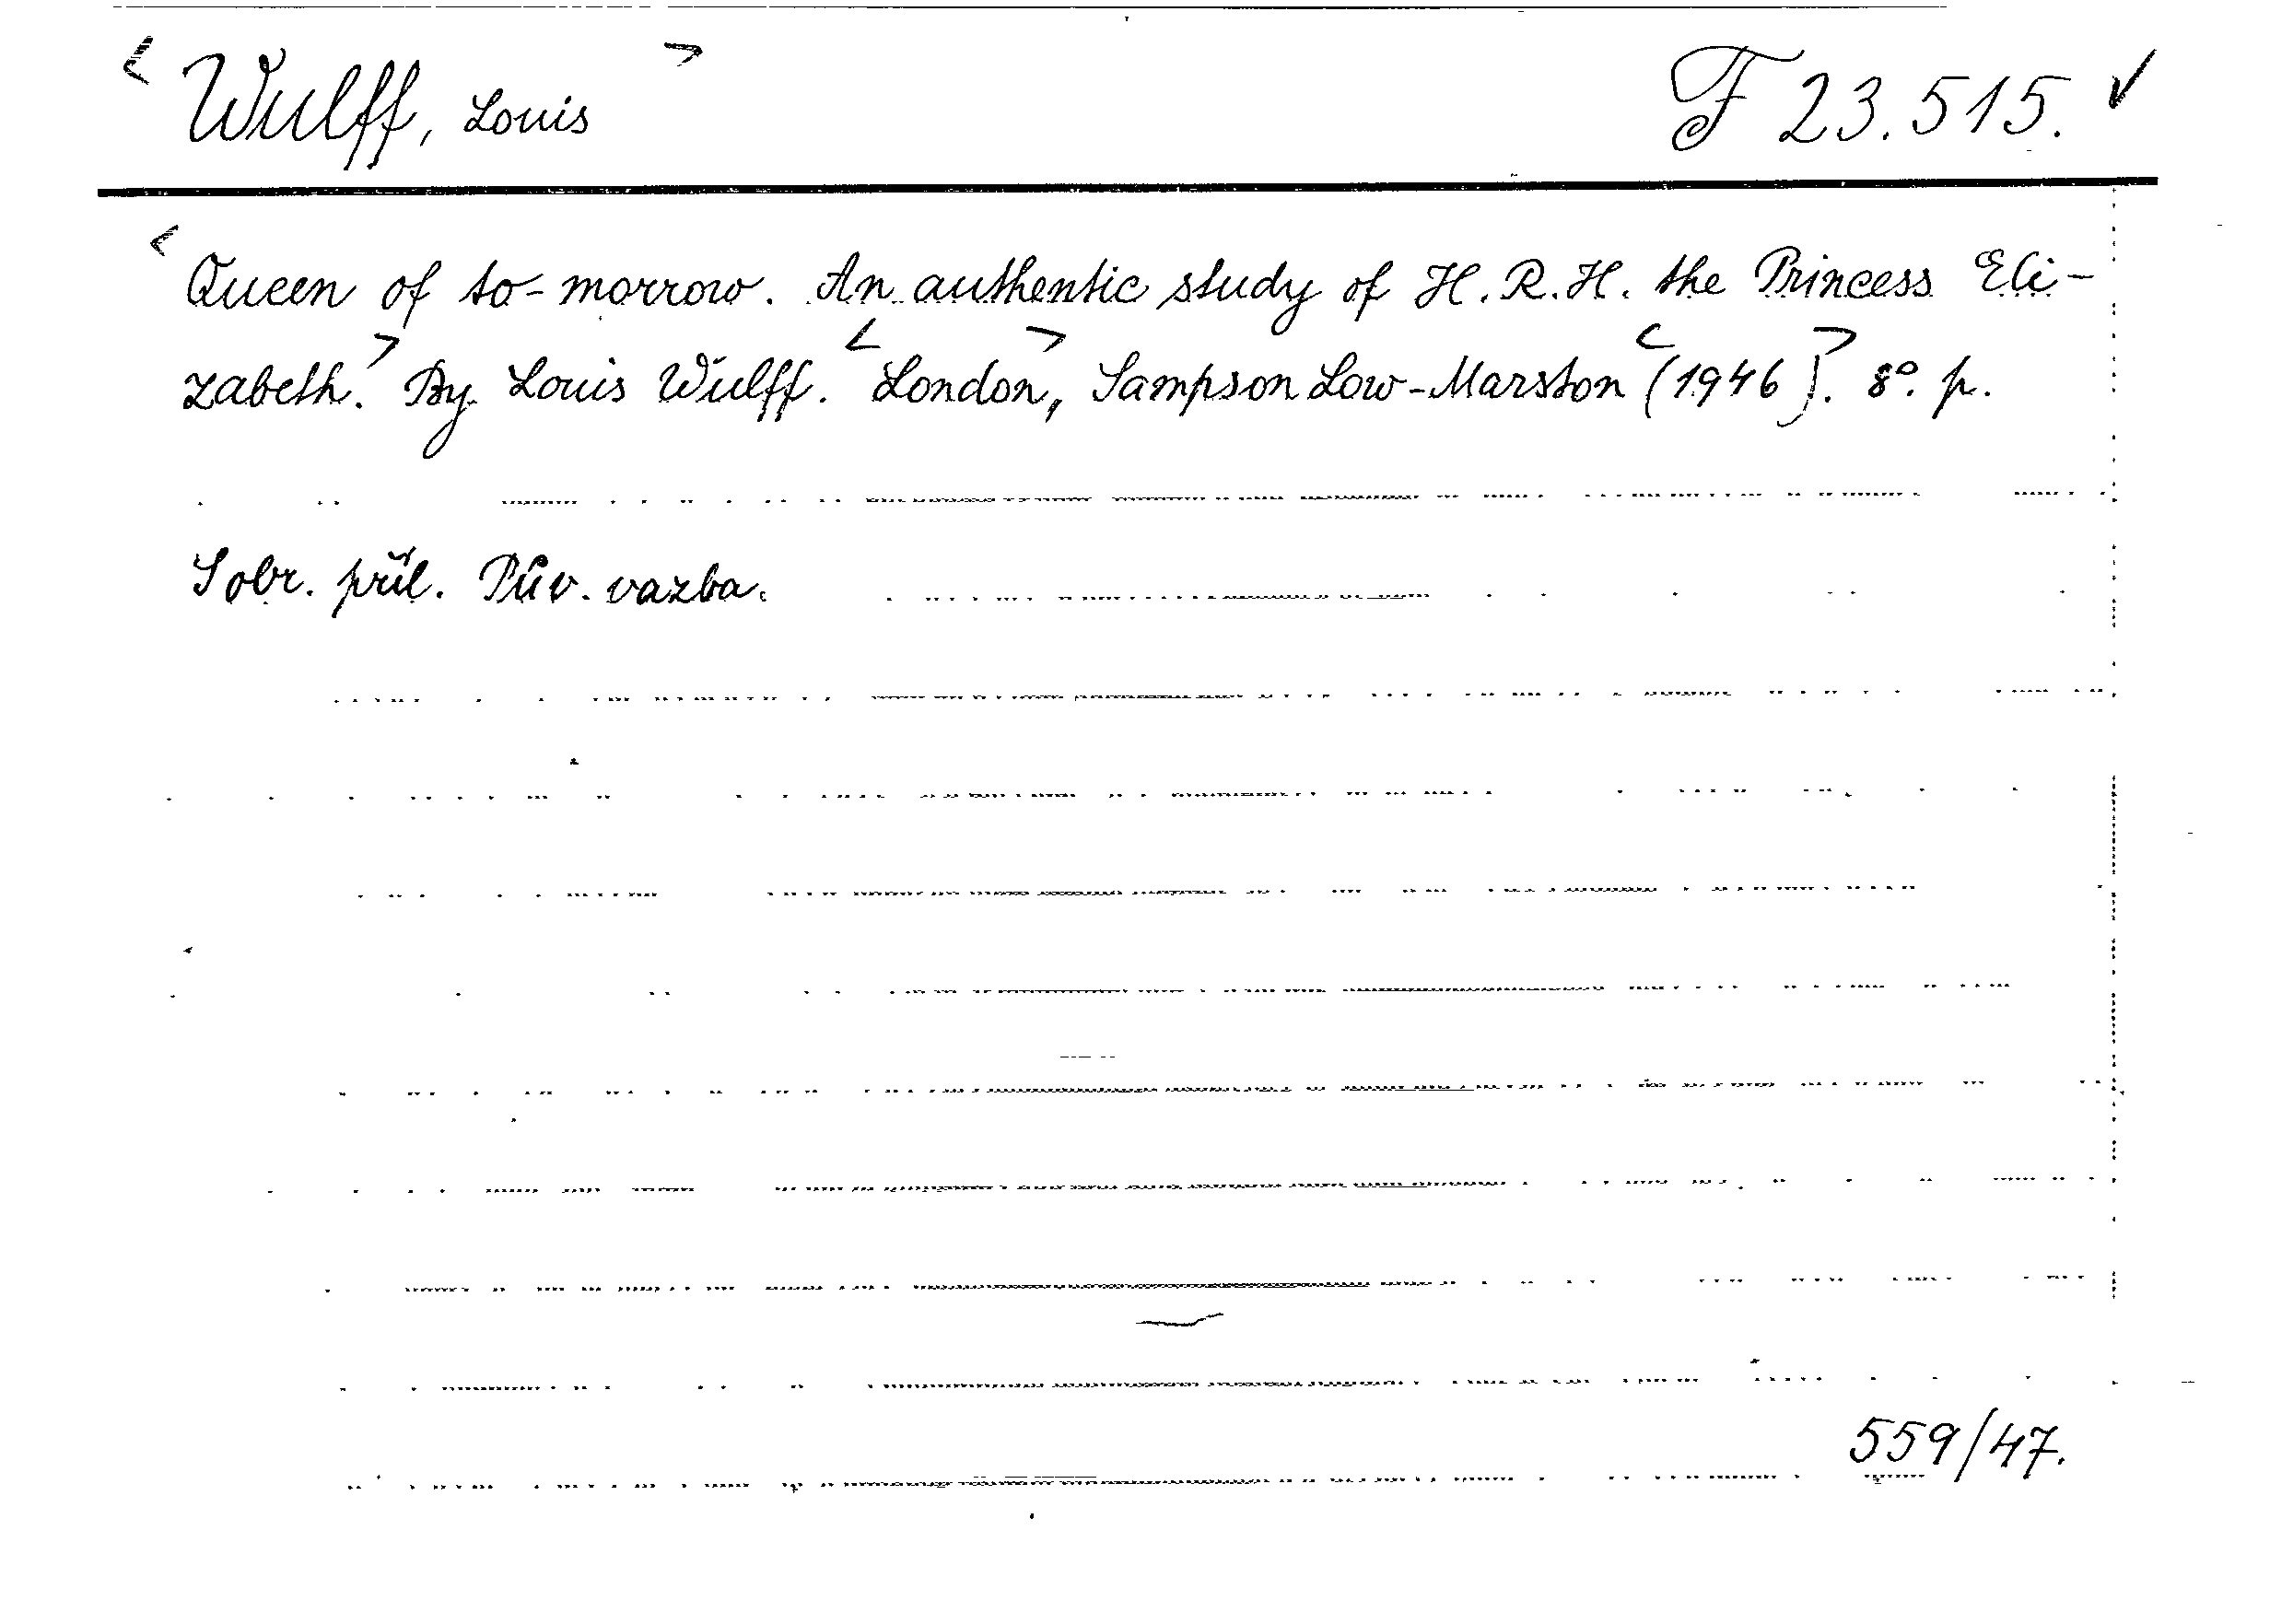 < Wulff, Louis > F 23.515. ✓
< Queen of to-morrow. An authentic study of H. R. H. the Princess Eli-
zabeth. > By Louis Wulff. < London, > Sampson Low-Marston < (1946). > 8°. p.
S obr. příl. Pův. vazba.
559/47.